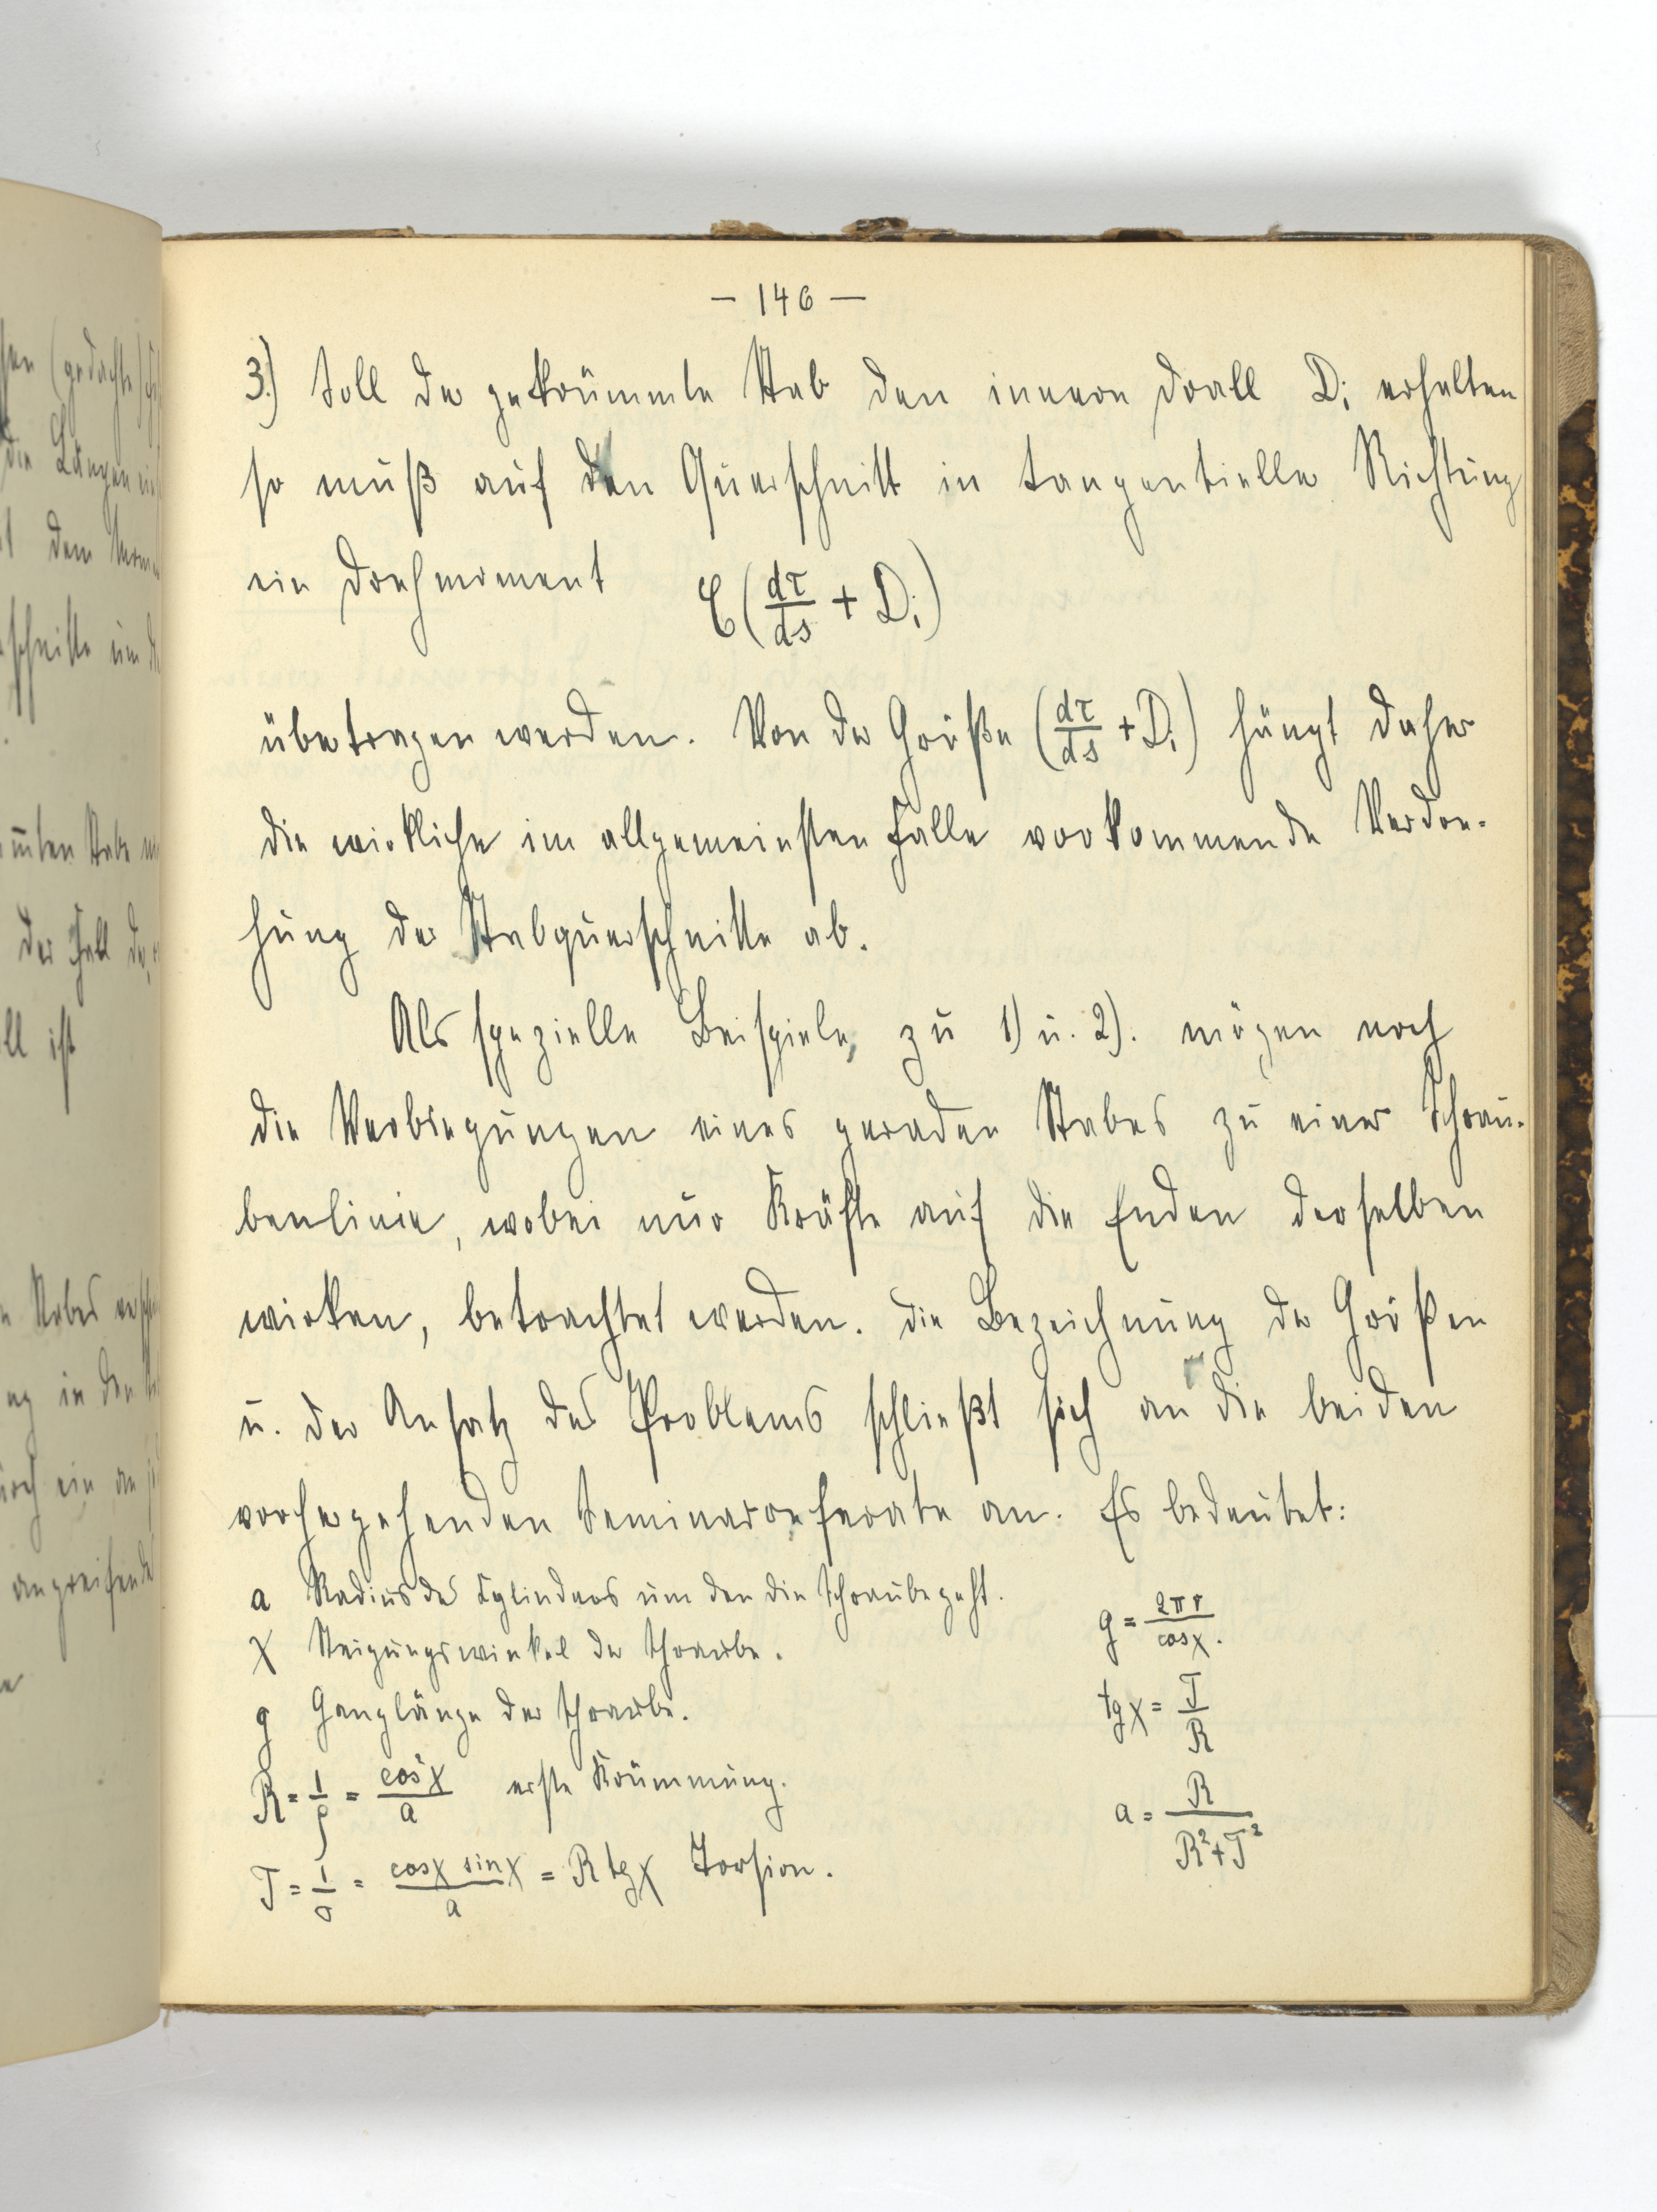 — 146 —
3.) Soll der gekrümmte Stab den innern Drall Dᵢ erhalten
so muß auf den Querschnitt in tangentieller Richtung
ein Drehmoment ℭ(dτ/ds + Dᵢ)
übertragen werden. Von der Größe (dτ/ds + Dᵢ) hängt daher
die wirkliche im allgemeinsten Falle vorkommende Verdre-
hung der Stabquerschnitte ab.
Als spezielle Beispiele, zu 1) u. 2). mögen noch
die Verbiegungen eines geraden Stabes zu einer Schrau-
benlinie, wobei nur Kräfte auf die Enden derselben
wirken, betrachtet werden. Die Bezeichnung der Größen
u. der Ansatz des Problems schließt sich an die beiden
vorhergehenden Seminarreferate an. Es bedeutet:
a Radius des Cylinders um den die Schraube geht.
χ Steigungswinkel der Schraube. g = 2πr/cosχ.
g Ganglänge der Schraube. tgχ = T/R
R = 1/ρ = cos²χ/a erste Krümmung. a = R/(R²+T²)
T = 1/σ = cosχ sinχ/a = R tgχ Torsion.